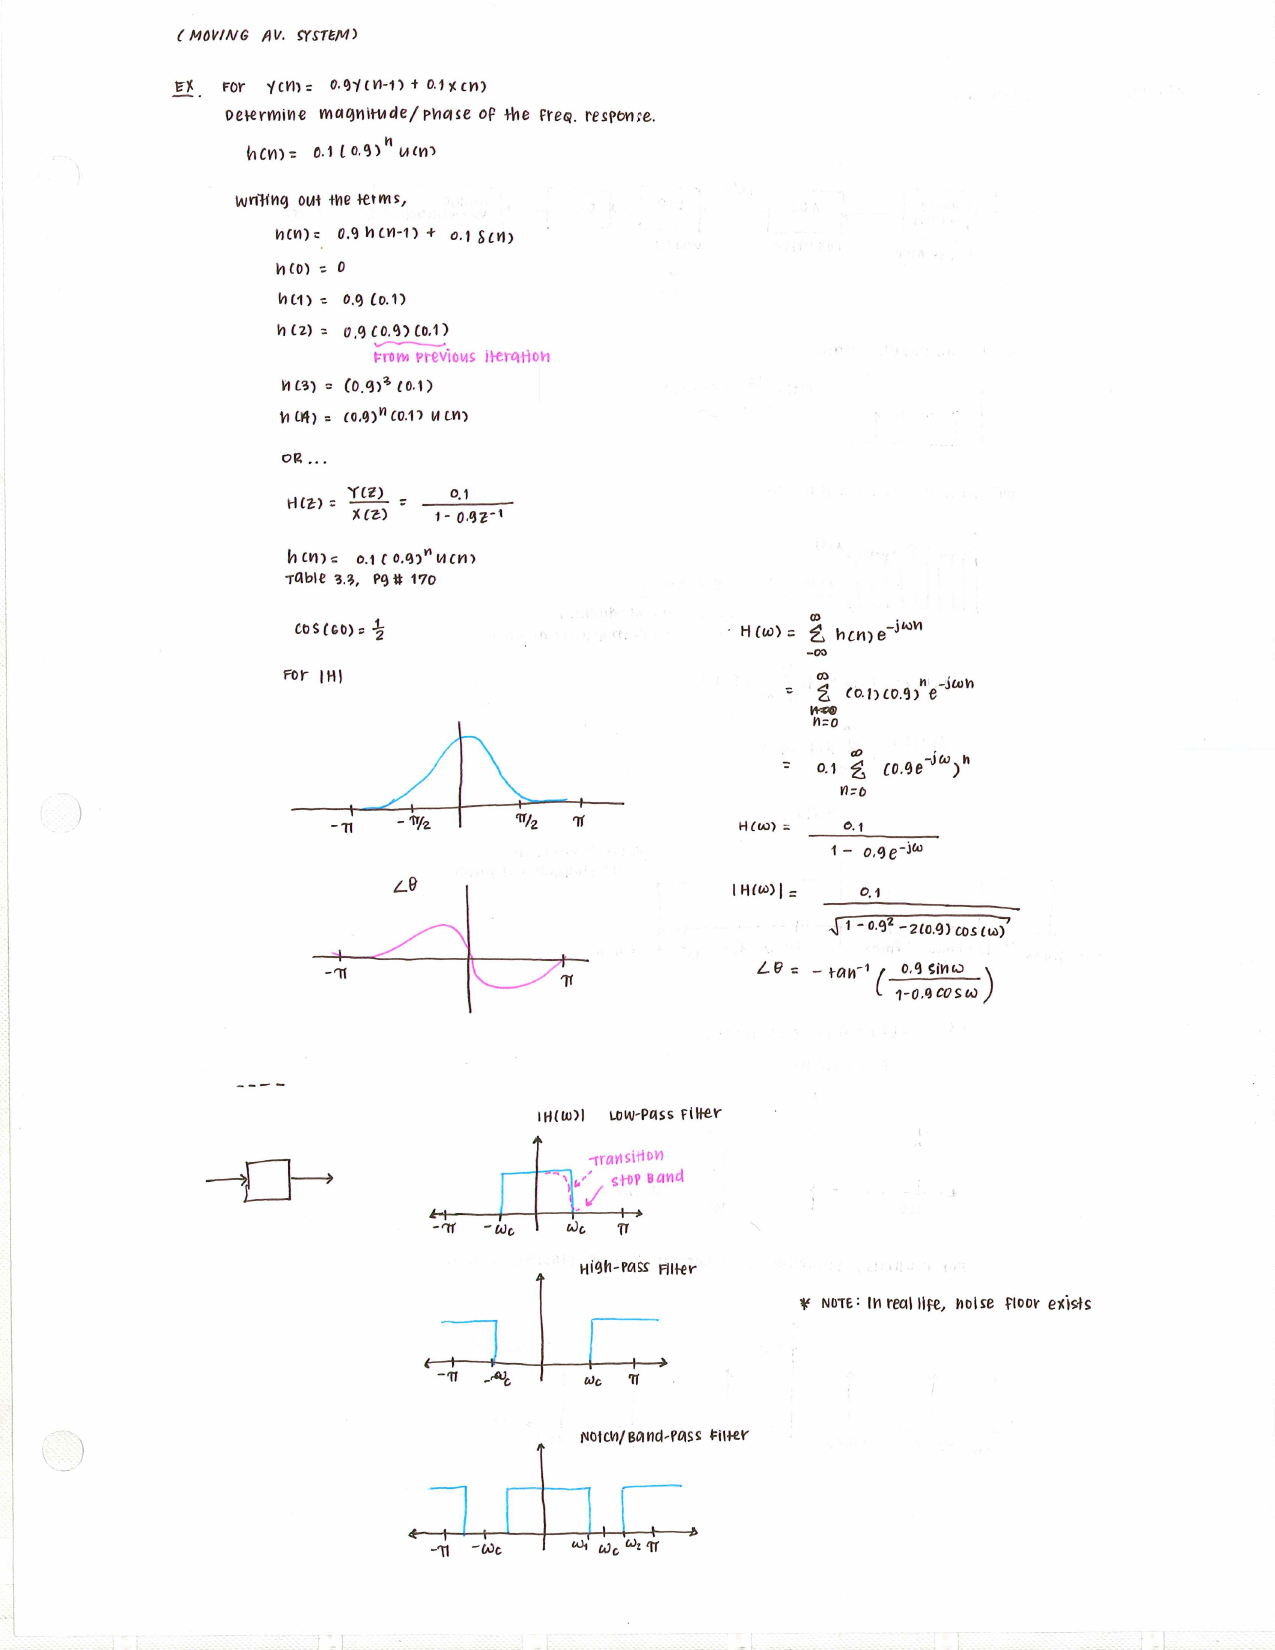 (MOVING AV. SYSTEM)
EX. For y(n) = 0.9y(n-1) + 0.1x(n)
Determine magnitude/phase of the freq. response.
h(n) = 0.1(0.9)^n u(n)
Writing out the terms,
h(n) = 0.9h(n-1) + 0.1δ(n)
h(0) = 0
h(1) = 0.9(0.1)
h(2) = 0.9(0.9)(0.1)
From previous iteration
h(3) = (0.9)^3 (0.1)
h(n) = (0.9)^n (0.1) u(n)
OR...
H(z) = Y(z)/X(z) = 0.1/(1 - 0.9z^-1)
h(n) = 0.1(0.9)^n u(n)
Table 3.3, Pg # 170
cos(60) = 1/2
For |H|
-π -π/2 π/2 π
∠θ
-π π
H(ω) = ∑_{-∞}^{∞} h(n)e^{-jωn}
= ∑_{n=0}^{∞} (0.1)(0.9)^n e^{-jωn}
= 0.1 ∑_{n=0}^{∞} (0.9e^{-jω})^n
H(ω) = 0.1/(1 - 0.9e^{-jω})
|H(ω)| = 0.1/√(1 - 0.9² - 2(0.9)cos(ω))
∠θ = -tan^-1 (0.9 sinω/(1-0.9 cosω))
----
|H(ω)| Low-Pass Filter
Transition
Stop Band
-π -ωc ωc π
High-Pass Filter
* NOTE: In real life, noise floor exists
-π -ωc ωc π
Notch/Band-Pass Filter
-π -ωc ω1 ωc ω2 π